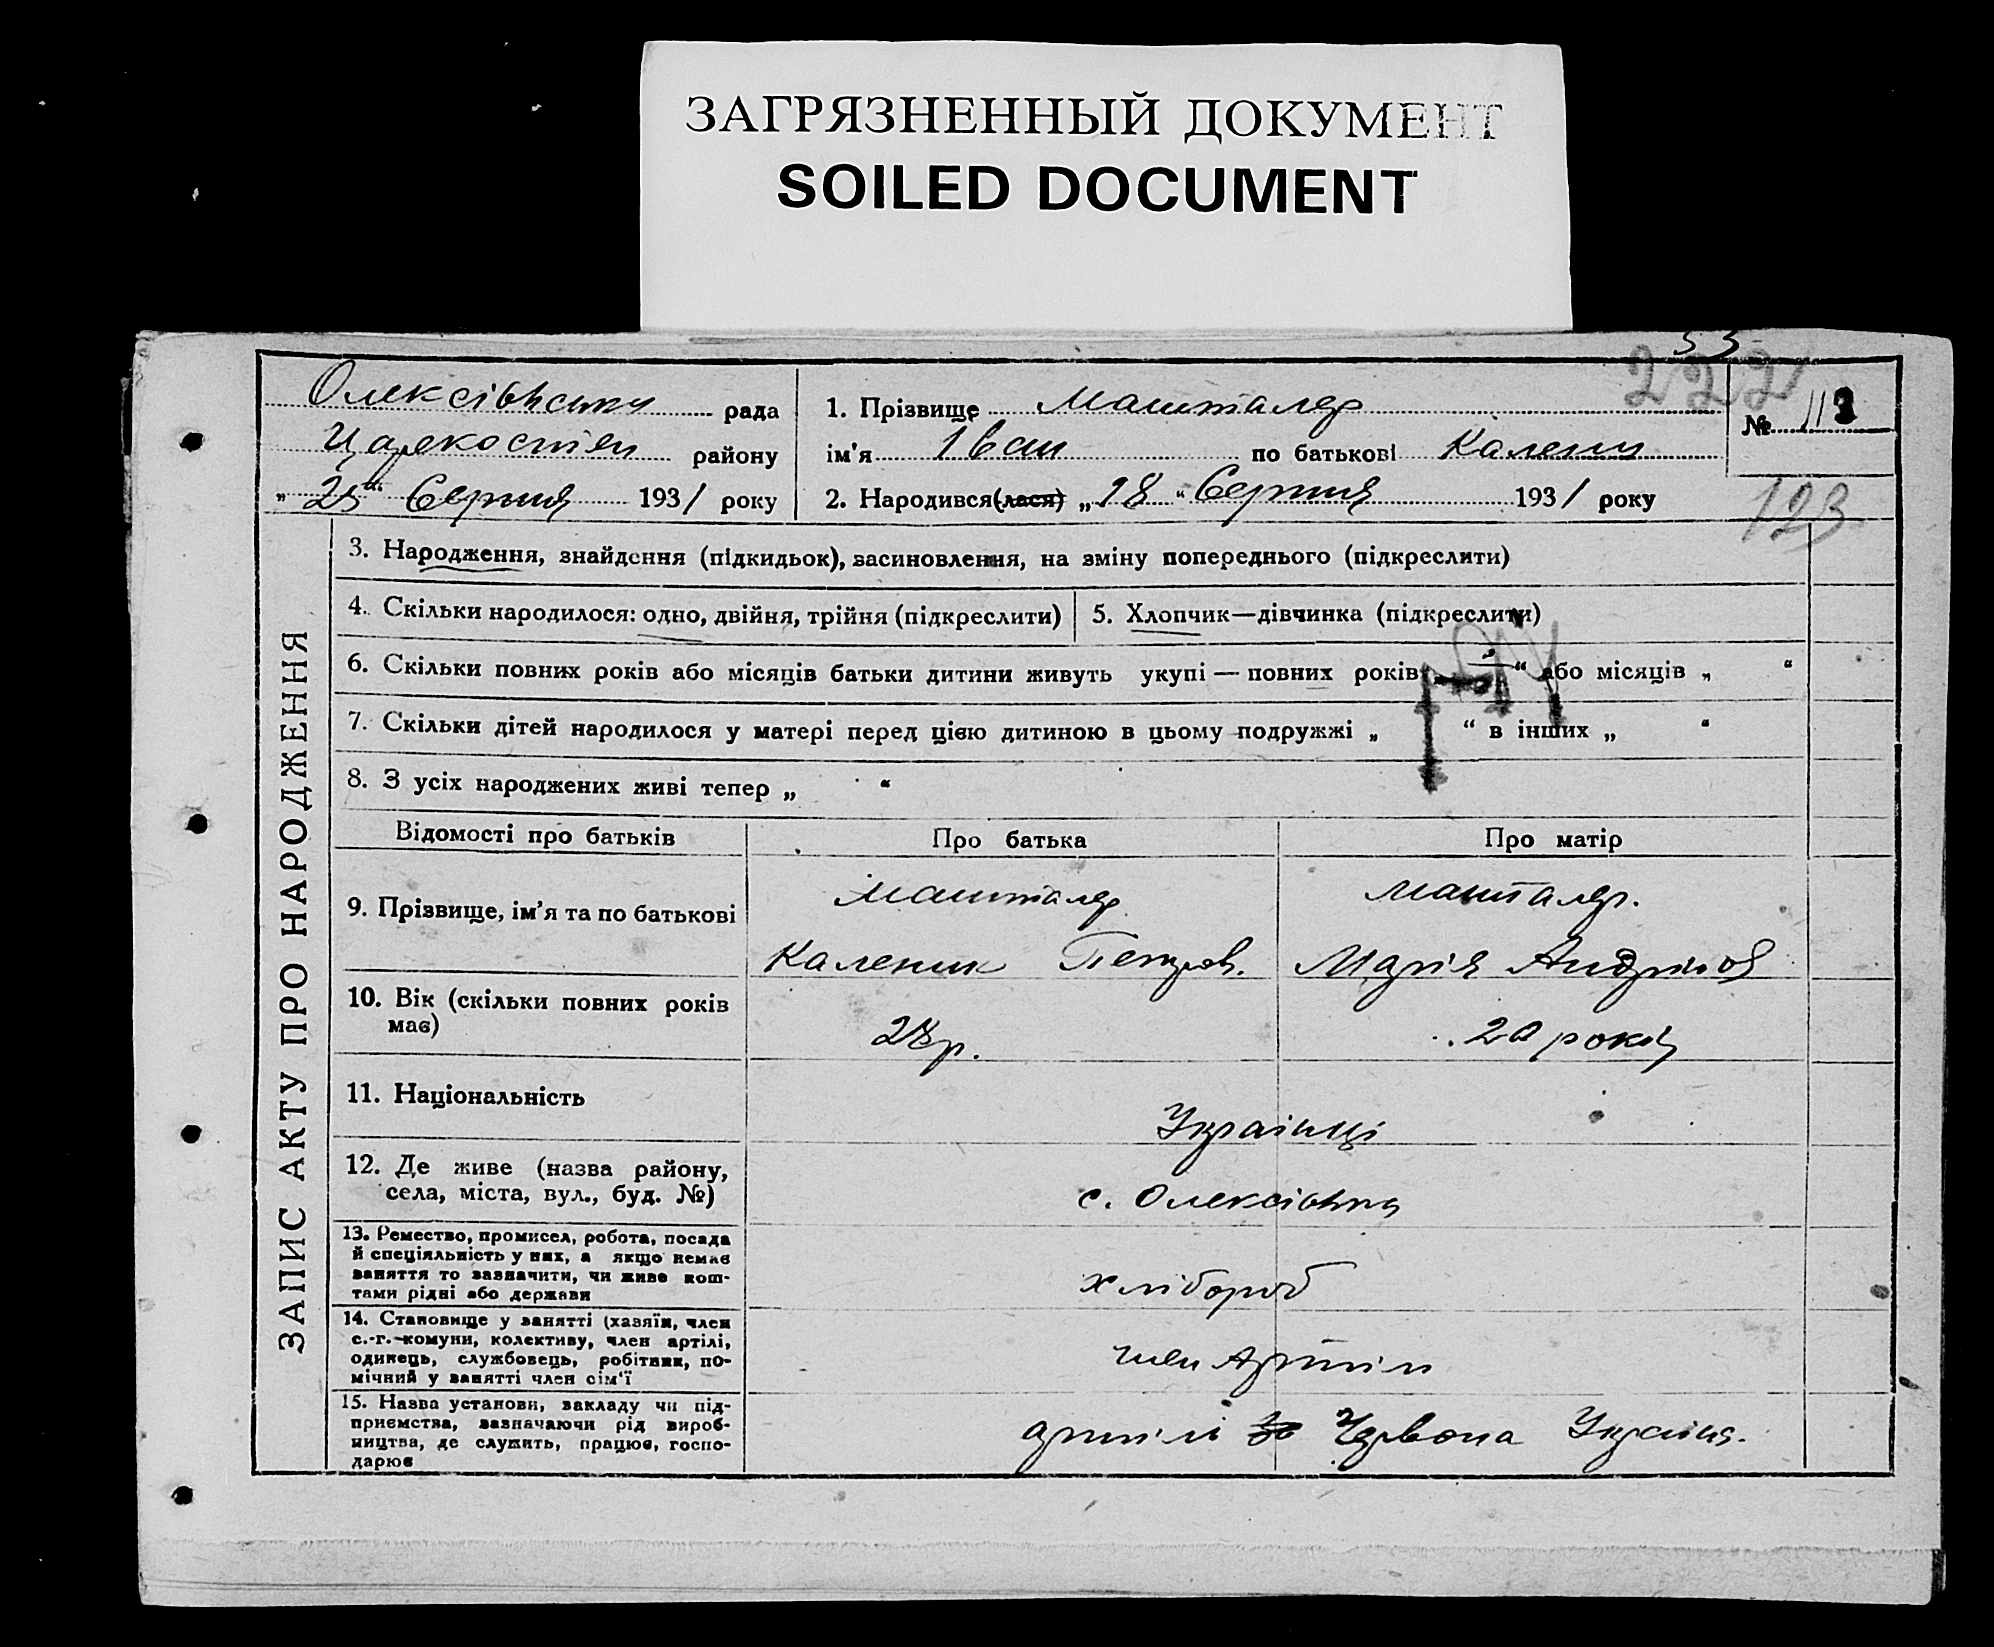 ЗАГРЯЗНЕННЫЙ ДОКУМЕНТ
SOILED DOCUMENT
53
222
Олексієвська рада
району
„25“ Серпня 1931 року
1. Прізвище Машталер
№ 113
ім'я Іван по батькові Калени
2. Народився(лася) „18“ Серпня 1931 року
123
ЗАПИС АКТУ ПРО НАРОДЖЕННЯ
3. Народження, знайдення (підкидьок), засиновлення, на зміну попереднього (підкреслити)
4. Скільки народилося: одно, двійня, трійня (підкреслити)
5. Хлопчик—дівчинка (підкреслити)
6. Скільки повних років або місяців батьки дитини живуть укупі — повних років “ або місяців „ “
7. Скільки дітей народилося у матері перед цією дитиною в цьому подружжі „ “ в інших „ “
8. З усіх народжених живі тепер „ “
Відомості про батьків
Про батька
Про матір
9. Прізвище, ім'я та по батькові
Машталер
Каленик Петров.
Машталер.
Марія Андріїв
10. Вік (скільки повних років
має)
28р.
20 років
11. Національність
Українці
12. Де живе (назва району,
села, міста, вул., буд. №)
с. Олексієвка
13. Ремество, промисел, робота, посада
й спеціяльність у них, а якщо немає
заняття то зазначити, чи живе кош-
тами рідні або держави
хлібороб
14. Становище у занятті (хазяїн, член
с.-г.-комуни, колективу, член артілі,
одинець, службовець, робітник, по-
мічний у занятті член сім'ї
член Артіли
15. Назва установи, закладу чи під-
приємства, зазначаючи рід вироб-
ництва, де служить, працює, госпо-
дарює
артілі Червона Україна.